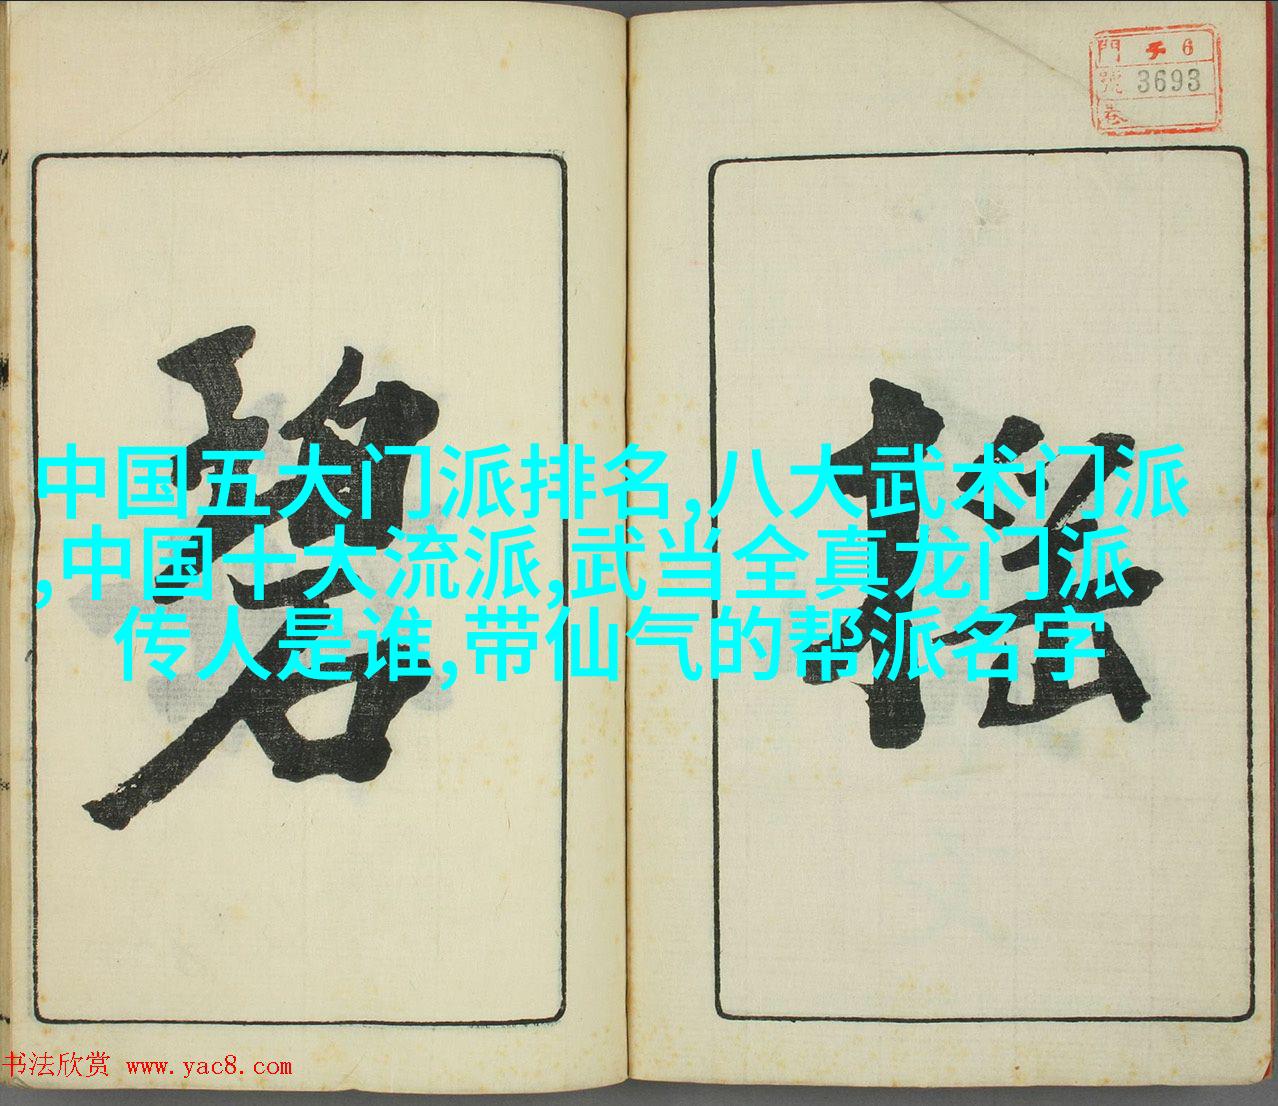 門 チ 6
號 3693
卷
碧
中国五大门派排名,八大武术门派
,中国十大流派,武当全真龙门派
传人是谁,带仙气的帮派名字
书法欣赏 www.yac8.com